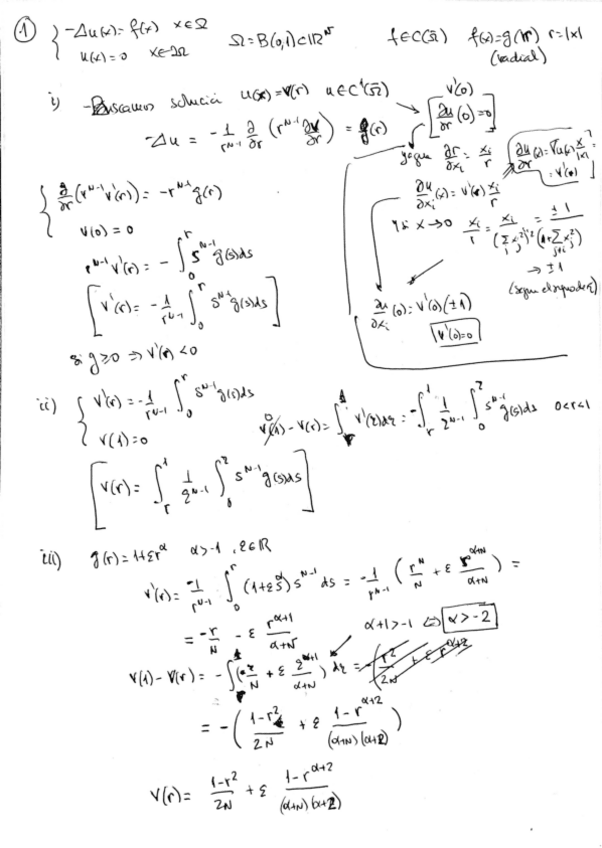 ① { -Δu(x) = f(x) x∈Ω
u(x) = 0 x∈∂Ω Ω = B(0,1) ⊂ ℝ^N f∈C(Ω̄) f(x) = g(r) r = |x| (radial)
i) - Buscamos solución u(x) = v(r) u∈C¹(Ω̄)
v'(0)
[ ∂u/∂r (0) = 0 ]
-Δu = -1/r^{N-1} ∂/∂r (r^{N-1} ∂v/∂r) = g(r)
ya que ∂r/∂x_i = x_i/r
[ ∂u/∂r (x) = ∇u(x) x/|x| = v'(r) ]
∂u/∂x_i (x) = v'(r) x_i/r
y si x→0 x_i/r = x_i/(Σ_j x_j²)^{1/2} = ±1/(1+Σ_{j≠i} x_j²)
→ ±1
∂u/∂x_i (0) = v'(0)(±1)
v'(0) = 0
{ ∂/∂r (r^{N-1} v'(r)) = -r^{N-1} g(r)
v(0) = 0
r^{N-1} v'(r) = - ∫_0^r s^{N-1} g(s) ds
[ v'(r) = -1/r^{N-1} ∫_0^r s^{N-1} g(s) ds ]
si g≥0 ⇒ v'(r) < 0
ii) { v'(r) = -1/r^{N-1} ∫_0^r s^{N-1} g(s) ds
v(1) = 0
v(1) - v(r) = ∫_r^1 v'(z) dz = - ∫_r^1 1/z^{N-1} ∫_0^z s^{N-1} g(s) ds 0<r<1
[ v(r) = ∫_r^1 1/z^{N-1} ∫_0^z s^{N-1} g(s) ds ]
iii) g(r) = 1+εr^α α>-1, ε∈ℝ
v'(r) = -1/r^{N-1} ∫_0^r (1+εs^α) s^{N-1} ds = -1/r^{N-1} ( r^N/N + ε r^{α+N}/(α+N) ) =
= -r/N - ε r^{α+1}/(α+N) α+1>-1 ⇔ α>-2
v(1) - v(r) = - ∫_r^1 ( z/N + ε z^{α+1}/(α+N) ) dz = - ( r²/2N + ε r^{α+2}
= - ( (1-r²)/2N + ε (1-r^{α+2})/((α+N)(α+2)) )
v(r) = (1-r²)/2N + ε (1-r^{α+2})/((α+N)(α+2))